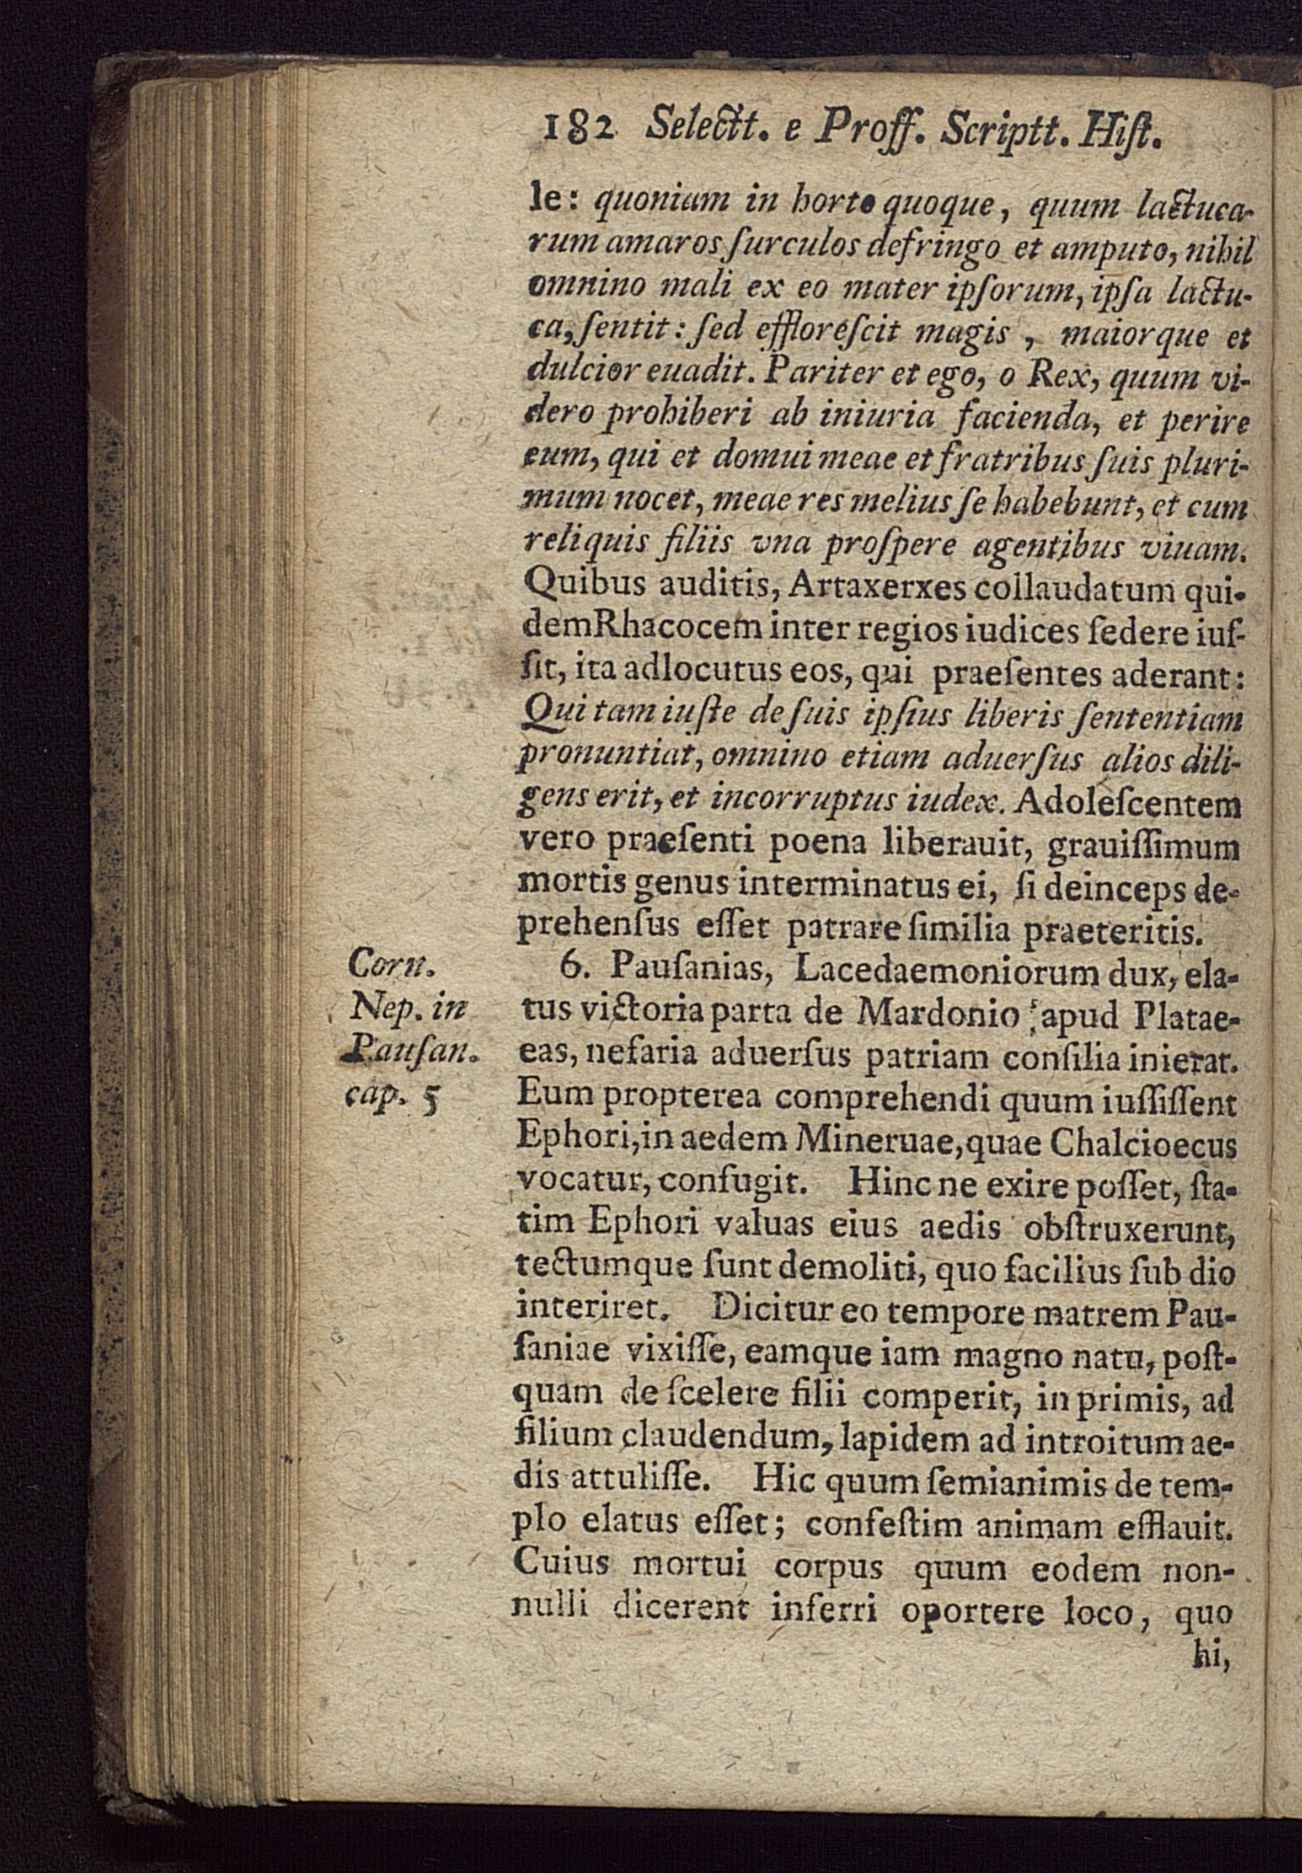 182 Selectt. e Proff. Scriptt. Hiſt.
le: quoniam in horto quoque, quum lactuca-
rum amaros ſurculos defringo et amputo, nihil
omnino mali ex eo mater ipſorum, ipſa lactu-
ca, ſentit: ſed effloreſcit magis, maiorque et
dulcior euadit. Pariter et ego, o Rex, quum vi-
dero prohiberi ab iniuria facienda, et perire
eum, qui et domui meae et fratribus ſuis pluri-
mum nocet, meae res melius ſe habebunt, et cum
reliquis filiis vna proſpere agentibus viuam.
Quibus auditis, Artaxerxes collaudatum qui-
dem Rhacocem inter regios iudices ſedere iuſ-
ſit, ita adlocutus eos, qui praeſentes aderant:
Qui tam iuſte de ſuis ipſius liberis ſententiam
pronuntiat, omnino etiam aduerſus alios dili-
gens erit, et incorruptus iudex. Adoleſcentem
vero praeſenti poena liberauit, grauiſſimum
mortis genus interminatus ei, ſi deinceps de-
prehenſus eſſet patrare ſimilia praeteritis.
Corn.
Nep. in
Pauſan.
cap. 5
6. Pauſanias, Lacedaemoniorum dux, ela-
tus victoria parta de Mardonio apud Platae-
eas, nefaria aduerſus patriam conſilia inierat.
Eum propterea comprehendi quum iuſſiſſent
Ephori, in aedem Mineruae, quae Chalcioecus
vocatur, confugit. Hinc ne exire poſſet, ſta-
tim Ephori valuas eius aedis obſtruxerunt,
tectumque ſunt demoliti, quo facilius ſub dio
interiret. Dicitur eo tempore matrem Pau-
ſaniae vixiſſe, eamque iam magno natu, poſt-
quam de ſcelere filii comperit, in primis, ad
filium claudendum, lapidem ad introitum ae-
dis attuliſſe. Hic quum ſemianimis de tem-
plo elatus eſſet; confeſtim animam efflauit.
Cuius mortui corpus quum eodem non-
nulli dicerent inferri oportere loco, quo
hi,